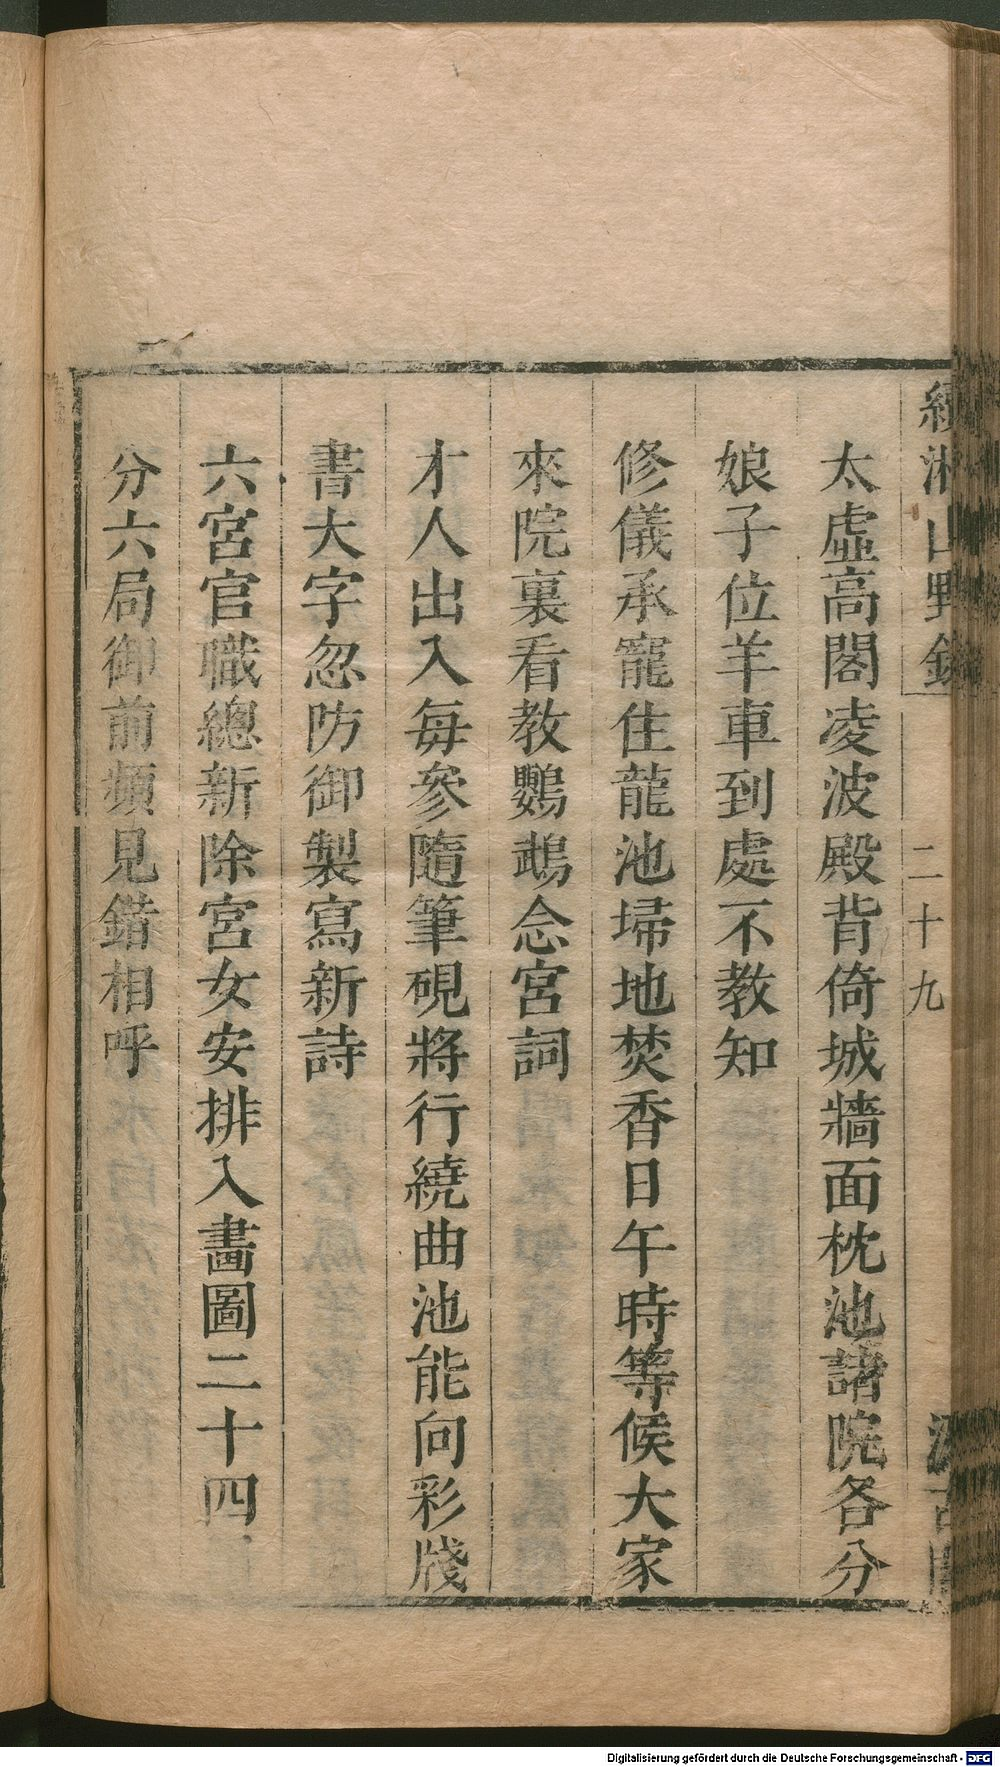 續湘山野錄 二十九 汲古閣
太虛高閣凌波殿背倚城牆面枕池諸院各分
娘子位羊車到處不教知
修儀承寵住龍池埽地焚香日午時等候大家
來院裏看教鸚鵡念宮詞
才人出入每參隨筆硯將行繞曲池能向彩牋
書大字忽防御製寫新詩
六宮官職總新除宮女安排入畫圖二十四
分六局御前頻見錯相呼
Digitalisierung gefördert durch die Deutsche Forschungsgemeinschaft - DFG